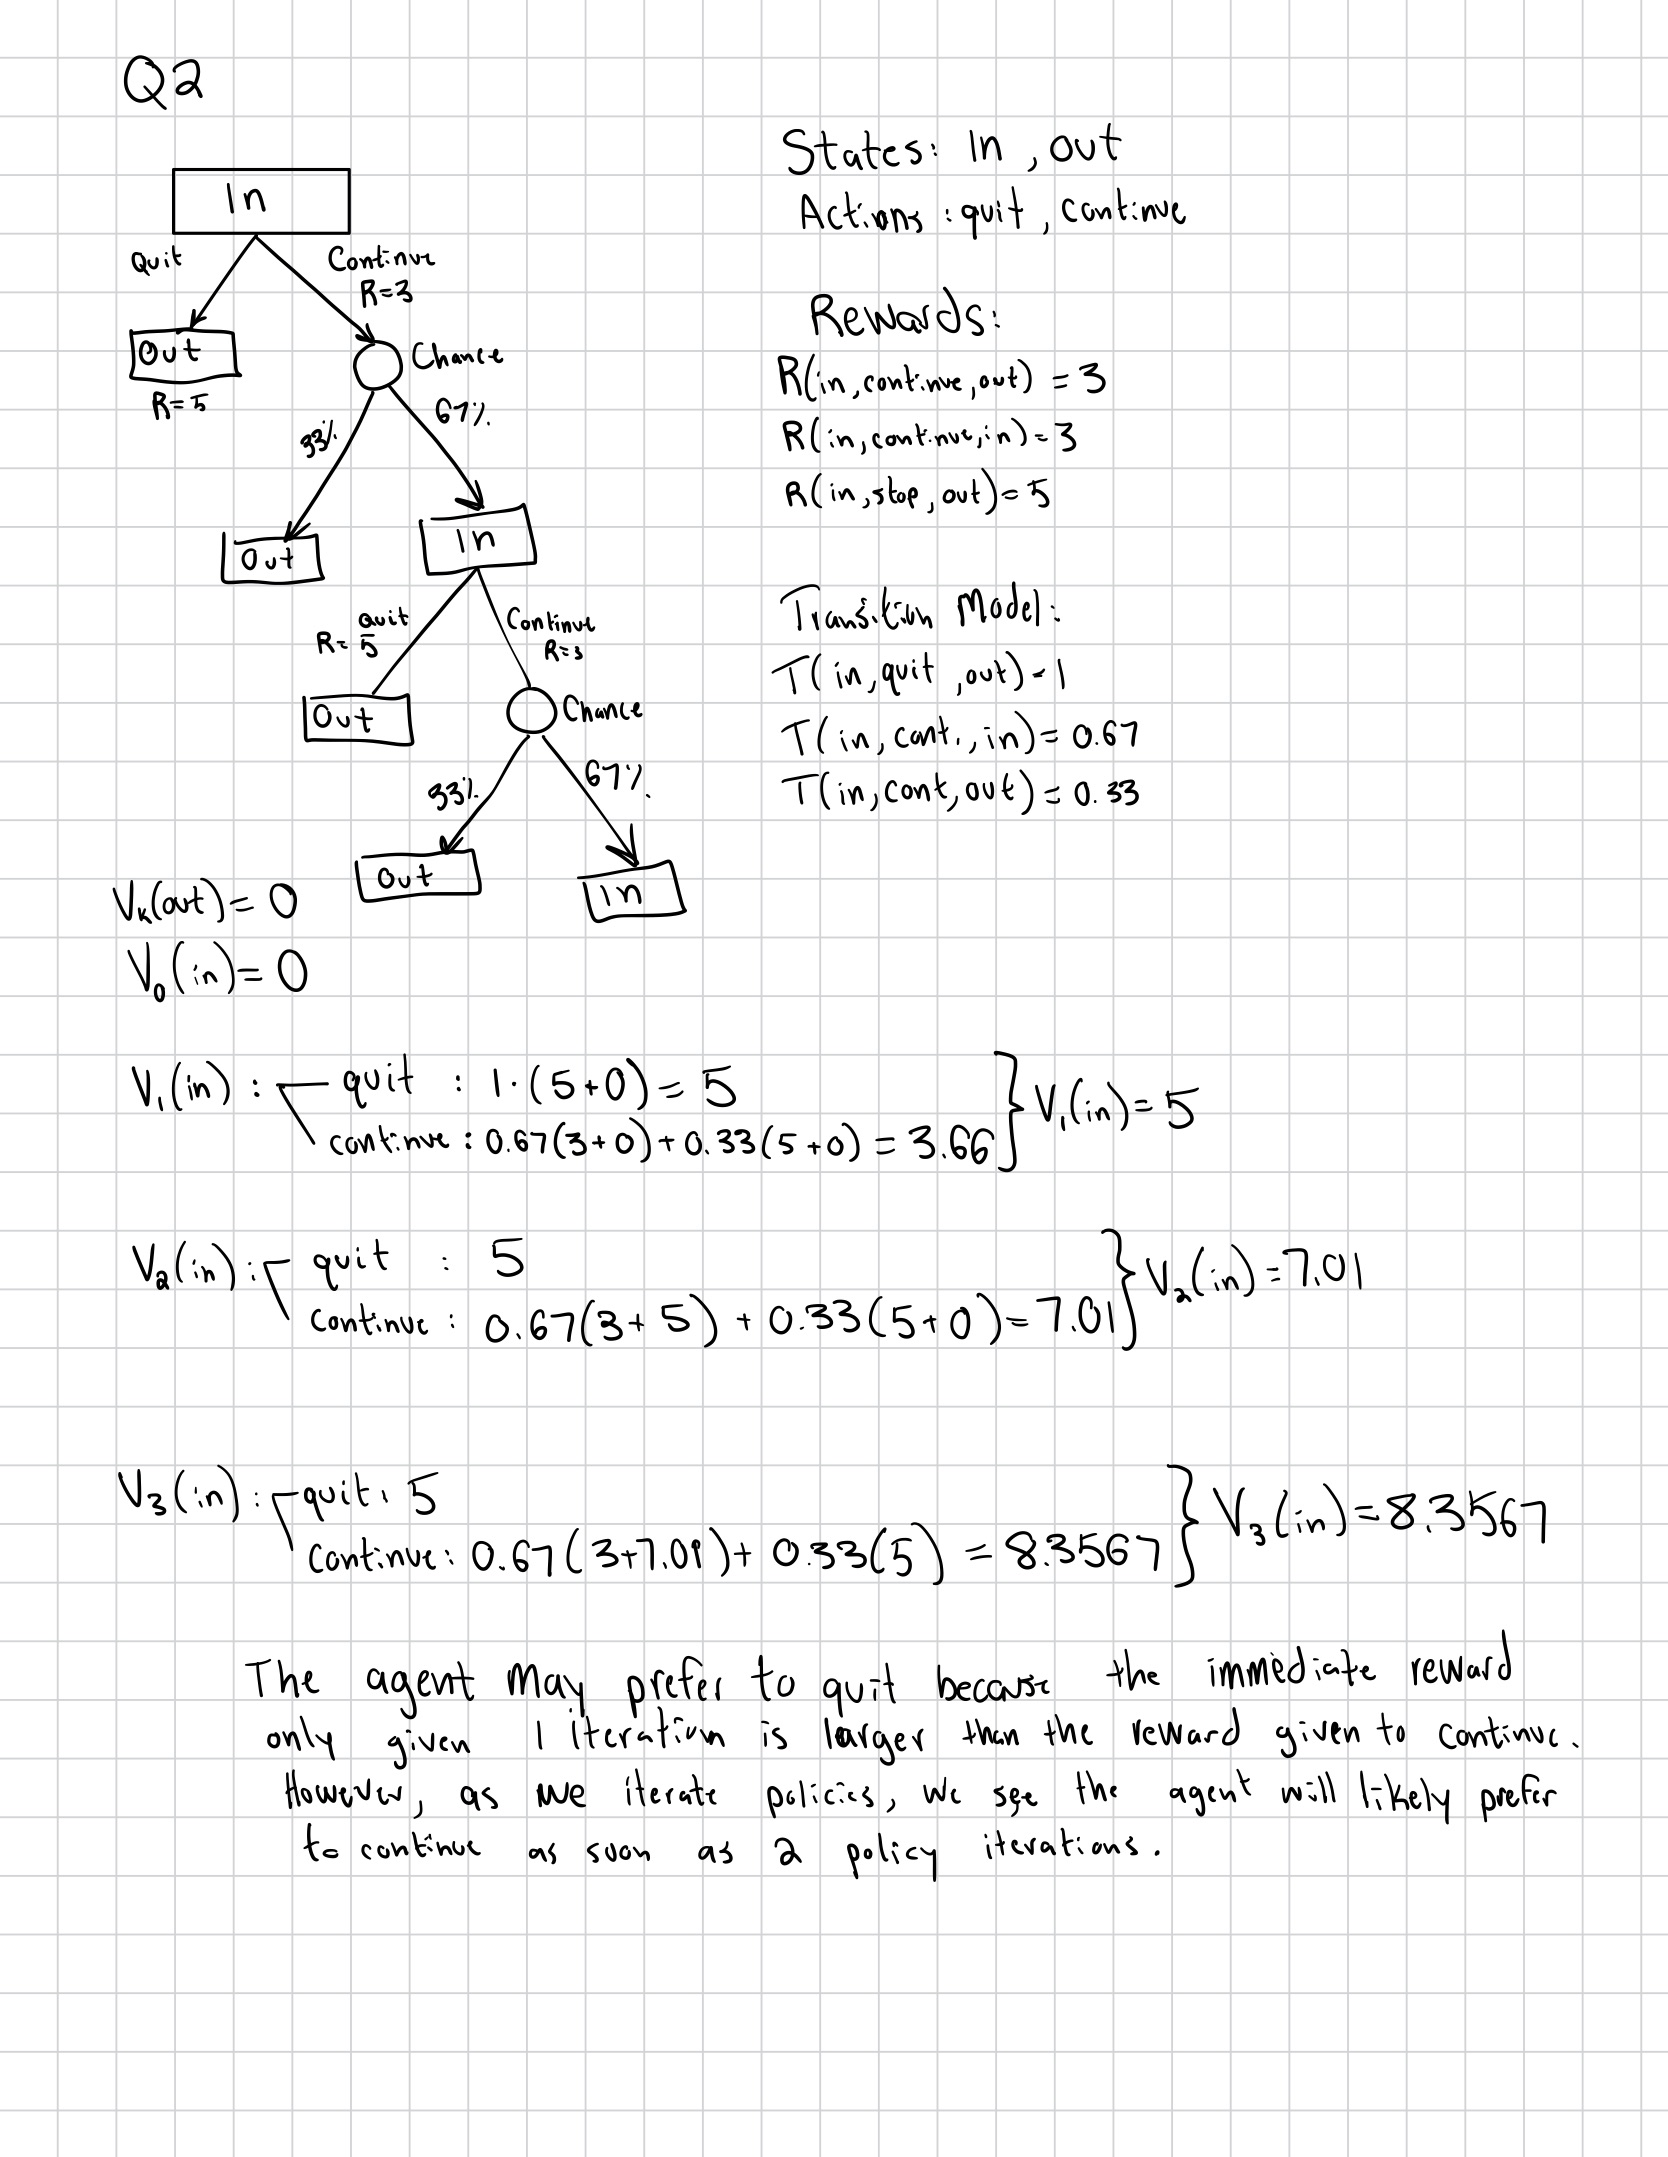 Q2
In
Quit
Continue
R=3
Out
R=5
Chance
33%
67%
Out
In
Quit
R=5
Continue
R=3
Out
Chance
33%
67%
Out
In
States: In, out
Actions: quit, continue
Rewards:
R(in, continue, out) = 3
R(in, continue, in) = 3
R(in, stop, out) = 5
Transition Model:
T(in, quit, out) = 1
T(in, cont., in) = 0.67
T(in, cont, out) = 0.33
Vk(out) = 0
V0(in) = 0
V1(in): quit: 1·(5+0) = 5
continue: 0.67(3+0) + 0.33(5+0) = 3.66 } V1(in) = 5
V2(in): quit: 5
continue: 0.67(3+5) + 0.33(5+0) = 7.01 } V2(in) = 7.01
V3(in): quit: 5
continue: 0.67(3+7.01) + 0.33(5) = 8.3567 } V3(in) = 8.3567
The agent may prefer to quit because the immediate reward
only given 1 iteration is larger than the reward given to continue.
However, as we iterate policies, we see the agent will likely prefer
to continue as soon as 2 policy iterations.